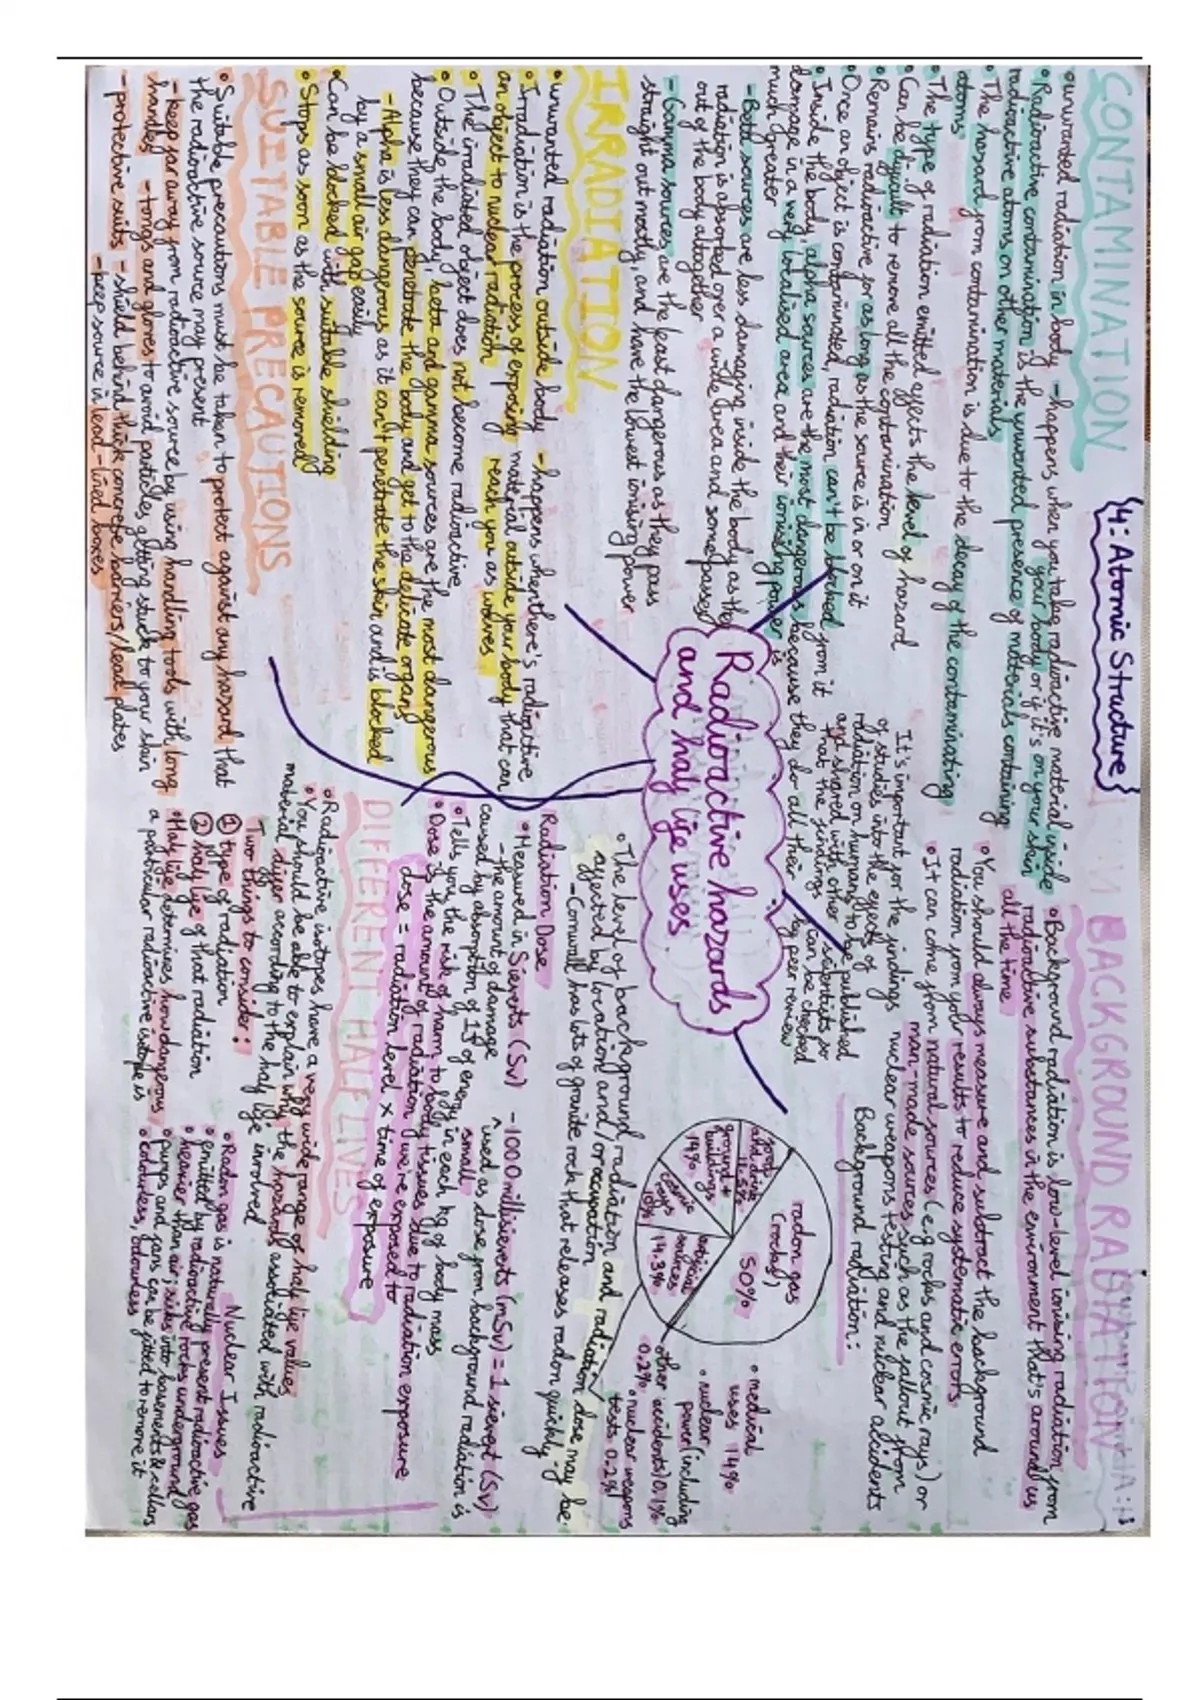 {4: Atomic Structure}
CONTAMINATION
• unwanted radiation in body - happens when you take radioactive material inside
your body or if it's on your skin
• Radioactive contamination is the unwanted presence of materials containing
radioactive atoms on other materials
• The hazard from contamination is due to the decay of the contaminating
atoms
• The type of radiation emitted affects the level of hazard
• Can be difficult to remove all the contamination
• Remains radioactive for as long as the source is in or on it
• Once an object is contaminated, radiation can't be blocked from it
• Inside the body, alpha sources are the most dangerous because they do all their
damage in a very localised area and their ionising power is
much greater
- Beta sources are less damaging inside the body as the
radiation is absorbed over a wide area and some passes
out of the body altogether
- Gamma sources are the least dangerous as they pass
straight out mostly, and have the lowest ionising power
IRRADIATION
• unwanted radiation outside body - happens when there's radioactive
material outside your body that can
reach you as waves
• Irradiation is the process of exposing
an object to nuclear radiation
• The irradiated object does not become radioactive
• Outside the body, beta and gamma sources are the most dangerous
because they can penetrate the body and get to the delicate organs
- Alpha is less dangerous as it can't penetrate the skin and is blocked
by a small air gap easily
• Can be blocked with suitable shielding
• Stops as soon as the source is removed
SUITABLE PRECAUTIONS
• Suitable precautions must be taken to protect against any hazard that
the radioactive source may present
- keep far away from radioactive source by using handling tools with long
handles - tongs and gloves to avoid particles getting stuck to your skin
- protective suits - shield behind thick concrete barriers/lead plates
- keep source in lead-lined boxes
Radioactive hazards
and half life uses
It's important for the findings
of studies into the effects of
radiation on humans to be published
and shared with other scientists so
that the findings can be checked
by peer review
BACKGROUND RADIATION
• Background radiation is low-level ionising radiation from
radioactive substances in the environment that's around us
all the time
• You should always measure and subtract the background
radiation from your results to reduce systematic errors
• It can come from natural sources (e.g rocks and cosmic rays) or
man-made sources such as the fallout from
nuclear weapons testing and nuclear accidents
Background radiation:
radon gas
(rocks)
50%
food and drink
11.5%
ground +
buildings
14%
cosmic
rays
10%
artificial
sources
14.3%
• medical
uses 14%
• nuclear
power (including
other accidents) 0.1%
0.2% • nuclear weapons
tests 0.2%
• The level of background radiation and radiation dose may be
affected by location and/or occupation
- Cornwall has lots of granite rock that releases radon quickly
Radiation Dose
• Measured in Sieverts (Sv) - 1000 millisieverts (mSv) = 1 sievert (Sv)
^ used as dose from background radiation is
small
- the amount of damage
caused by absorption of 1J of energy in each kg of body mass
• Tells you the risk of harm to body tissues due to radiation exposure
• Dose is the amount of radiation we're exposed to
dose = radiation level x time of exposure
DIFFERENT HALF LIVES
• Radioactive isotopes have a very wide range of half life values
• You should be able to explain why the hazards associated with radioactive
material differ according to the half life involved
Two things to consider:
① type of radiation
② half life of that radiation
• Half life determines how dangerous
a particular radioactive isotope is
Nuclear Issues
• Radon gas is naturally present radioactive gas
• emitted by radioactive rocks underground
• heavier than air; sinks into basements & cellars
• pumps and fans can be fitted to remove it
• colourless, odourless